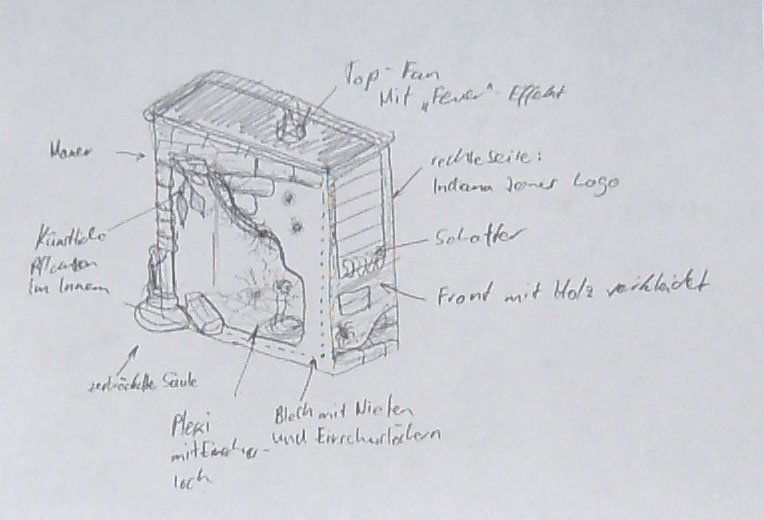 Top-Fan
Mit „Feuer"-Effekt
Mauer
rechte Seite:
Indiana Jones Logo
Künstliche
Pflanzen
Im Innern
Schalter
Front mit Holz verkleidet
zerbröckelte Säule
Plexi
mit Einschuss-
loch
Blech mit Nieten
und Einschusslöchern